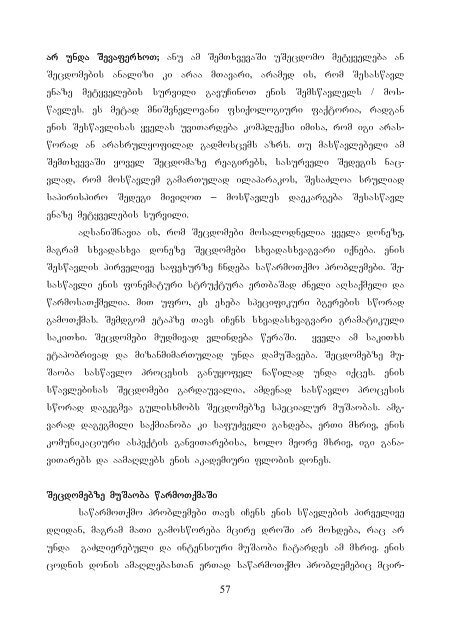 არ უნდა შევაფერხოთ; ანუ ამ შემთხვევაში უშეცდომო მეტყველება ან
შეცდომების ანალიზი კი არაა მთავარი, არამედ ის, რომ შესასწავლ
ენაზე მეტყველების სურვილი გავუჩინოთ ენის შემსწავლელს / მოს-
წავლეს. ეს მეტად მნიშვნელოვანი ფსიქოლოგიური ფაქტორია, რადგან
ენის შესწავლისას ყველას უვითარდება კომპლექსი იმისა, რომ იგი არას-
წორად ან არასრულყოფილად გადმოსცემს აზრს. თუ მასწავლებელი ამ
შემთხვევაში ყოველ შეცდომაზე რეაგირებს, სასურველი შედეგის ნაც-
ვლად, რომ მოსწავლემ გამართულად ილაპარაკოს, შესაძლოა სრულიად
საპირისპირო შედეგი მივიღოთ – მოსწავლეს დაეკარგება შესასწავლ
ენაზე მეტყველების სურვილი.
აღსანიშნავია ის, რომ შეცდომები მოსალოდნელია ყველა დონეზე,
მაგრამ სხვადასხვა დონეზე შეცდომები სხვადასხვაგვარი იქნება. ენის
შესწავლის პირველივე საფეხურზე ჩნდება საწარმოთქმო პრობლემები. შე-
სასწავლი ენის ფონემატური სტრუქტურა ერთბაშად ძნელი აღსაქმელი და
წარმოსათქმელია. მით უფრო, ეს ეხება სპეციფიკური ბგერების სწორად
გამოთქმას. შემდგომ ეტაპზე თავს იჩენს სხვადასხვაგვარი გრამატიკული
საკითხი. შეცდომები მუდმივად ვლინდება წერაში. ყველა ამ საკითხს
ეტაპობრივად და მიზანმიმართულად უნდა დამუშავება. შეცდომებზე მუ-
შაობა სასწავლო პროცესის განუყოფელ ნაწილად უნდა იქცეს. ენის
სწავლებისას შეცდომები გარდაუვალია, ამდენად სასწავლო პროცესის
სწორად დაგეგმვა გულისხმობს შეცდომებზე სპეციალურ მუშაობას. ამგ-
ვარად დაგეგმილი საქმიანობა კი საფუძველი გახდება, ერთი მხრივ, ენის
კომუნიკაციური ასპექტის განვითარებისა, ხოლო მეორე მხრივ, იგი განა-
ვითარებს და აამაღლებს ენის აკადემიური ფლობის დონეს.
შეცდომებზე მუშაობა წარმოთქმაში
საწარმოთქმო პრობლემები თავს იჩენს ენის სწავლების პირველივე
დღიდან, მაგრამ მათი გამოსწორება მცირე დროში არ მოხდება, რაც არ
უნდა გაძლიერებული და ინტენსიური მუშაობა ჩატარდეს ამ მხრივ. ენის
ცოდნის დონის ამაღლებასთან ერთად საწარმოთქმო პრობლემებიც მცირ-
57